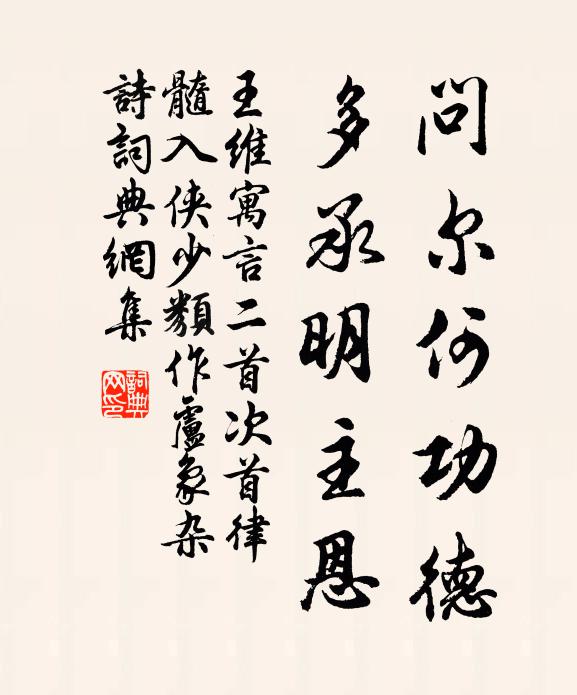 问尔何功德
多承明主恩
王维寓言二首次首律
髓入侠少類作盧象杂
詩詞典網集
詞典
网印